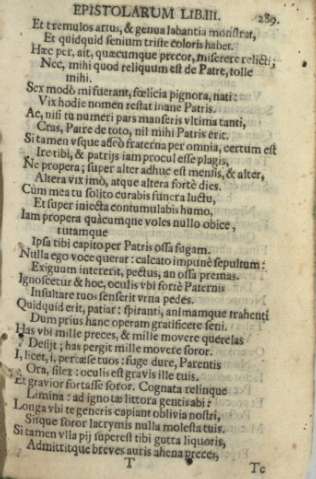 EPISTOLARUM LIB.III. 289.
Et tremulos artus, & genua labantia monstrat,
Et quidquid senium triste coloris habet.
Hæc per, ait, quæcumque precor, miserere relicti;
Nec, mihi quod reliquum est de Patre, tolle
mihi.
Sex modò mi fuerant, fœlicia pignora, nati:
Vix hodie nomen restat inane Patris.
Ac, nisi tu numeri pars manseris vltima tanti,
Cras, Patre de toto, nil mihi Patris erit.
Si tamen vsque adeò fraterna per omnia, certum est
Ire tibi, & patrijs iam procul esse plagis,
Ne propera; super alter adhuc est mensis, & alter,
Altera vix imò, atque altera fortè dies.
Cùm mea tu solito curabis funera luctu,
Et super iniecta contumulabis humo,
Iam propera quàcumque voles nullo obice,
tutamque
Ipsa tibi capito per Patris ossa fugam.
Nulla ego voce querar: calcato impunè sepultum:
Exiguum intererit, pectus, an ossa premas.
Ignoscetur & hoc, oculis vbi fortè Paternis
Insultare tuos senserit vrna pedes.
Quidquid erit, patiar: spiranti, animamque trahenti
Dum prius hanc operam gratificere seni.
Has vbi mille preces, & mille movere querelas
Desijt; has pergit mille movere soror.
I, licet, i, pertæse tuos: fuge dure, Parentis
Ora, silex: oculis est gravis ille tuis.
Et gravior fortasse soror. Cognata relinque
Limina: ad ignotæ littora gentis abi:
Longa vbi te generis capiant oblivia nostri,
Sitque soror lacrymis nulla molesta tuis.
Si tamen vlla pij superest tibi gutta liquoris,
Admittitque breves auris aliena preces,
T Te